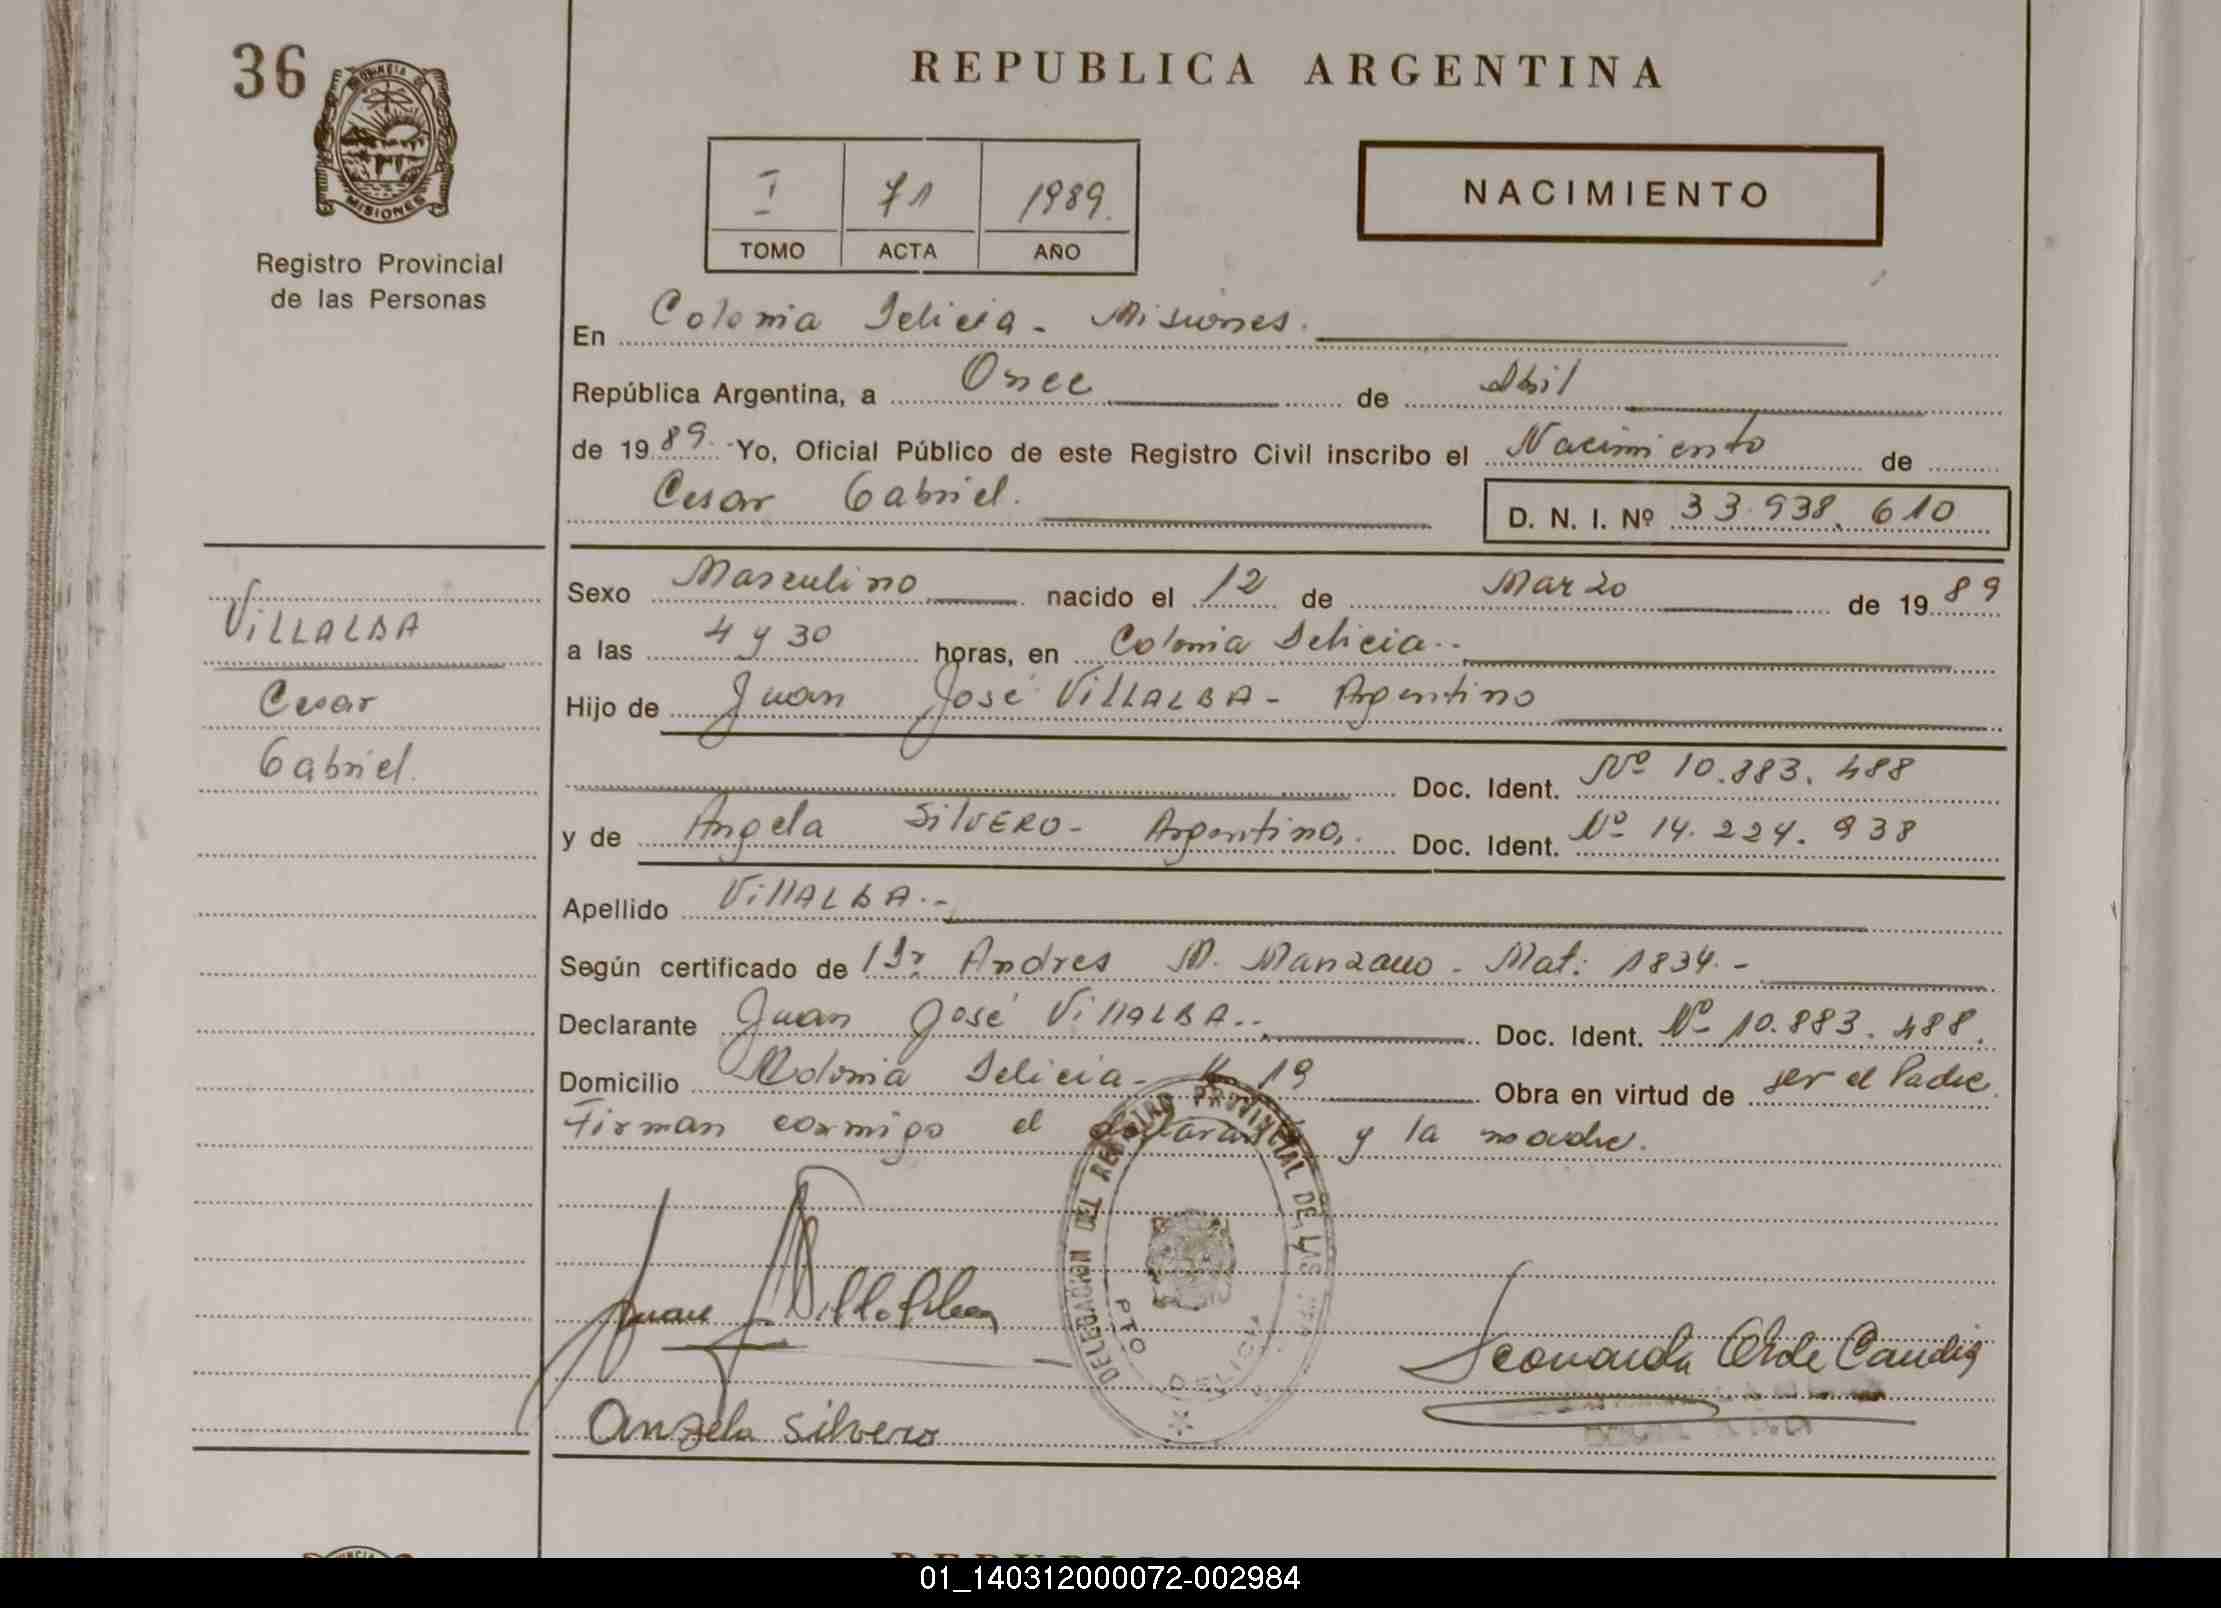 36
PROVINCIA DE
MISIONES
Registro Provincial
de las Personas
REPUBLICA ARGENTINA
I 71 1989.
TOMO ACTA AÑO
NACIMIENTO
En Colonia Delicia - Misiones.
República Argentina, a Once de Abril
de 1989. Yo, Oficial Público de este Registro Civil inscribo el Nacimiento de
Cesar Gabriel. D. N. I. Nº 33.938.610
VILLALBA
Cesar
Gabriel.
Sexo Masculino nacido el 12 de Marzo de 1989
a las 4 y 30 horas, en Colonia Delicia.-
Hijo de Juan José VILLALBA - Argentino
Doc. Ident. Nº 10.883.488
y de Angela SILVERO - Argentina. Doc. Ident. Nº 14.224.938
Apellido VILLALBA.-
Según certificado de Dr. Andres M. Manzano - Mat: 1834.-
Declarante Juan José VILLALBA.- Doc. Ident. Nº 10.883.488.
Domicilio Colonia Delicia - K 19 Obra en virtud de ser el Padre.
Firman conmigo el declarante y la madre.
DELEGACION DEL REGISTRO PROVINCIAL DE LAS
PTO DELICIA
Juan J Villalba
Angela Silvero
01_140312000072-002984